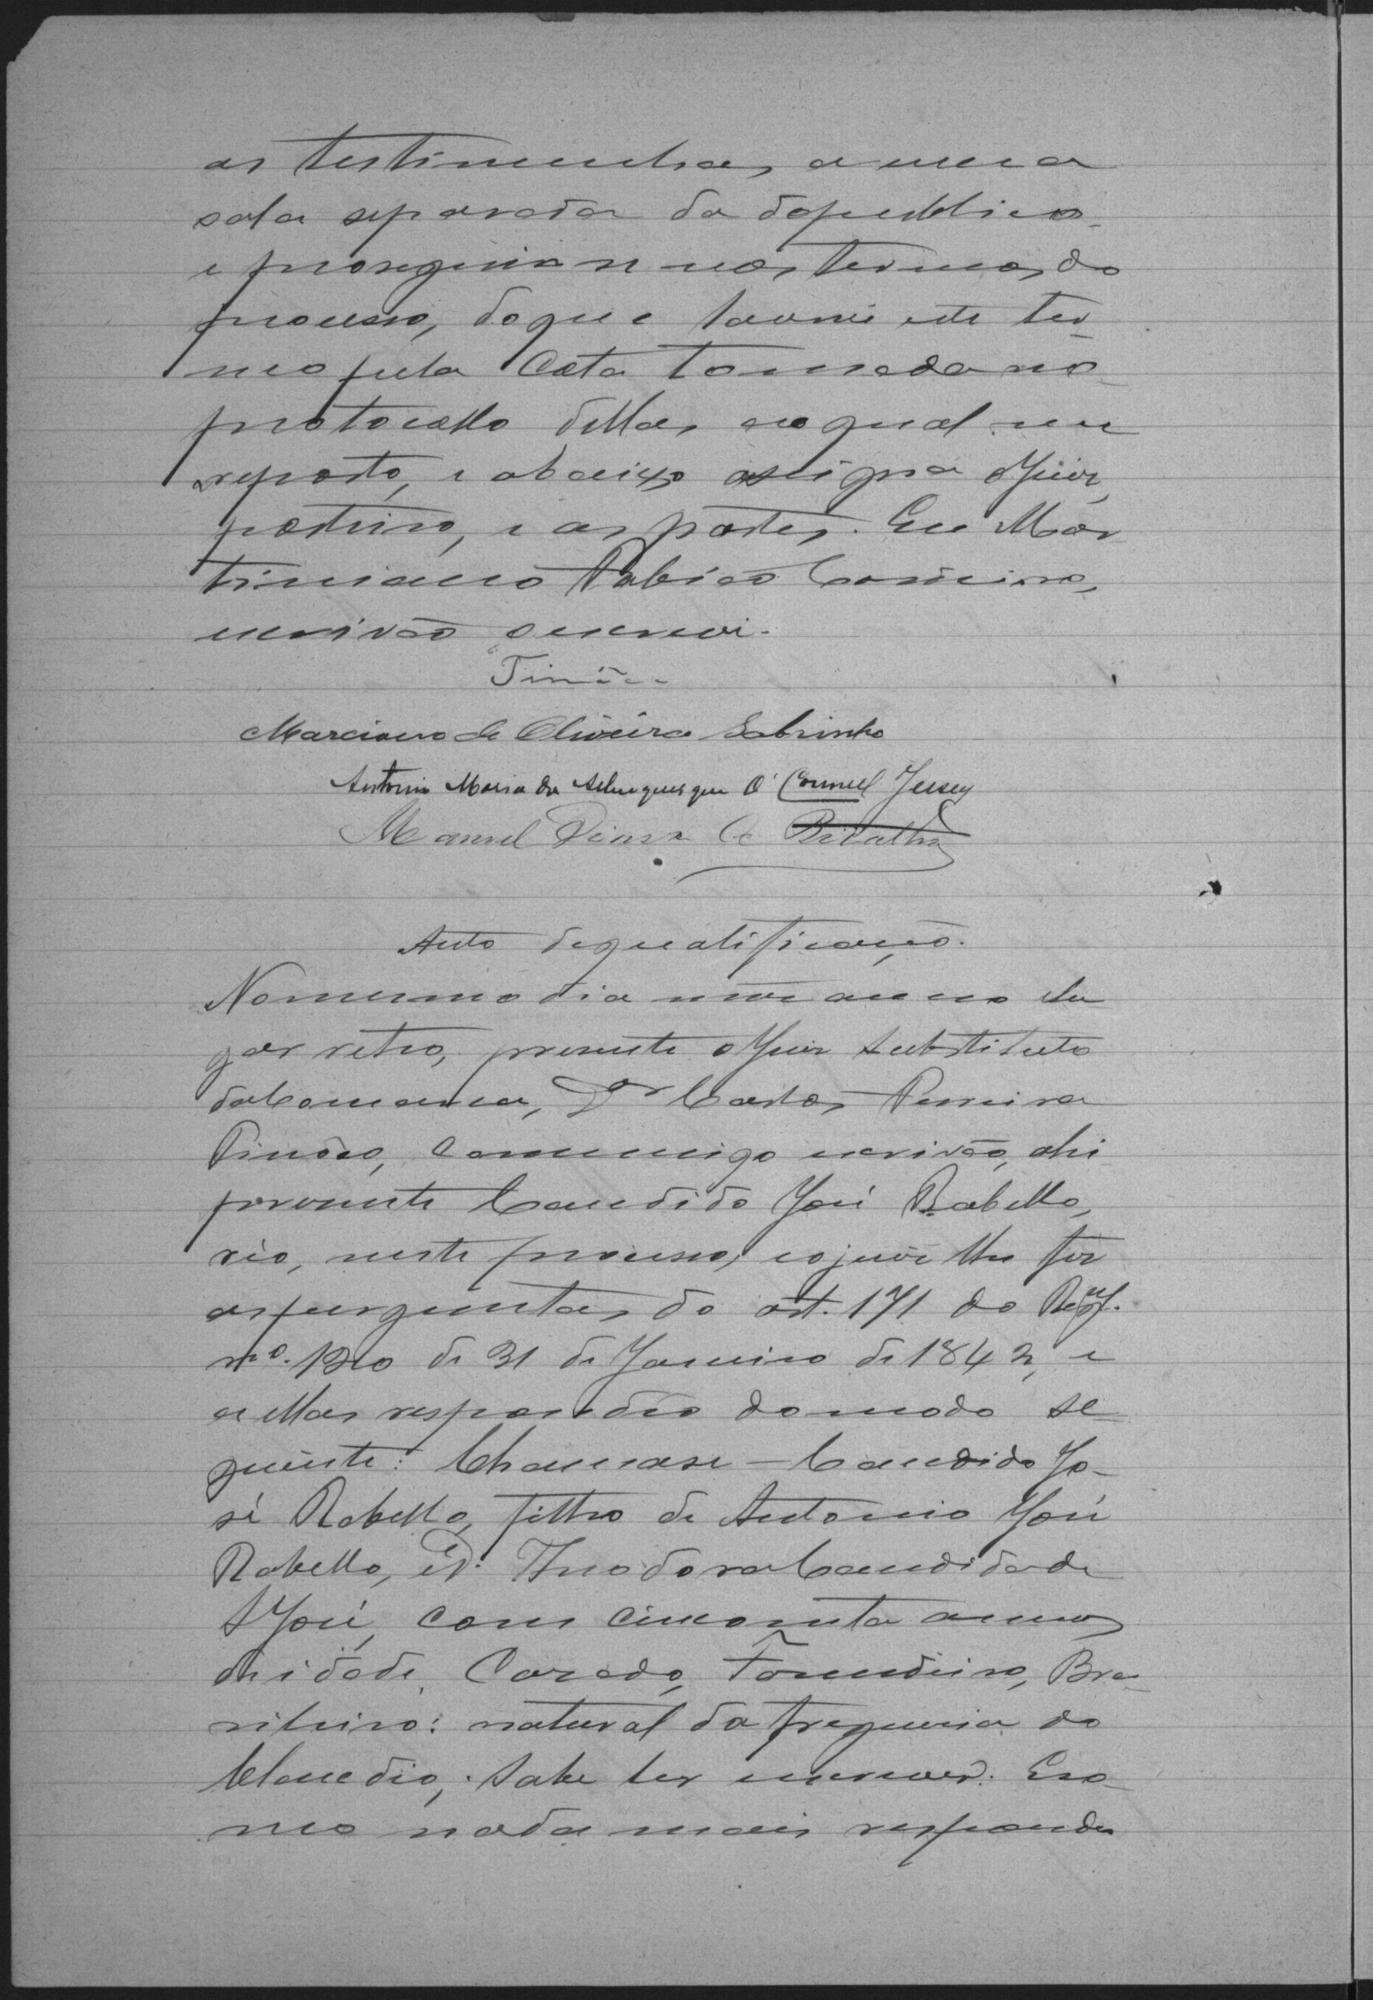 as testimunhas, a uma
sala separada da do publico
e proseguiu se nos termos do
processo, do que lavrei este ter
mo pela Cota tomada no
protocollo dellas, ao qual me
reporto, e abaixo assigna o Juiz,
e as partes. Eu Mar
timiano Fabião Carneiro,
escrivão o escrevi.
Pinão
Marciano de Oliveira Sobrinho
Antonio Maria de Albuquerque O' Connell Jersey
Manuel
Auto de qualificação.
No mesmo dia mez anno lu
gar retro, presente o Juiz Substituto
da Comarca, Dr Carlos Pereira
Pinão, commigo escrivão, ahi
presente Candido José Rabello,
réo, neste processo, o juiz lhe fez
as perguntas do art. 171 do Regul.
nº. 120 de 31 de Janeiro de 1842, e
a ellas respondeo do modo se
guinte: Chamase - Candido Jo-
sé Rabello, filho de Antonio José
Rabello, e D. Theodora Candida de
S José, com cincoenta annos
de idade, Casado, Fasendeiro, Bra-
sileiro: natural da freguesia do
Claudio, sabe ler escrever. E co
mo nada mais responder